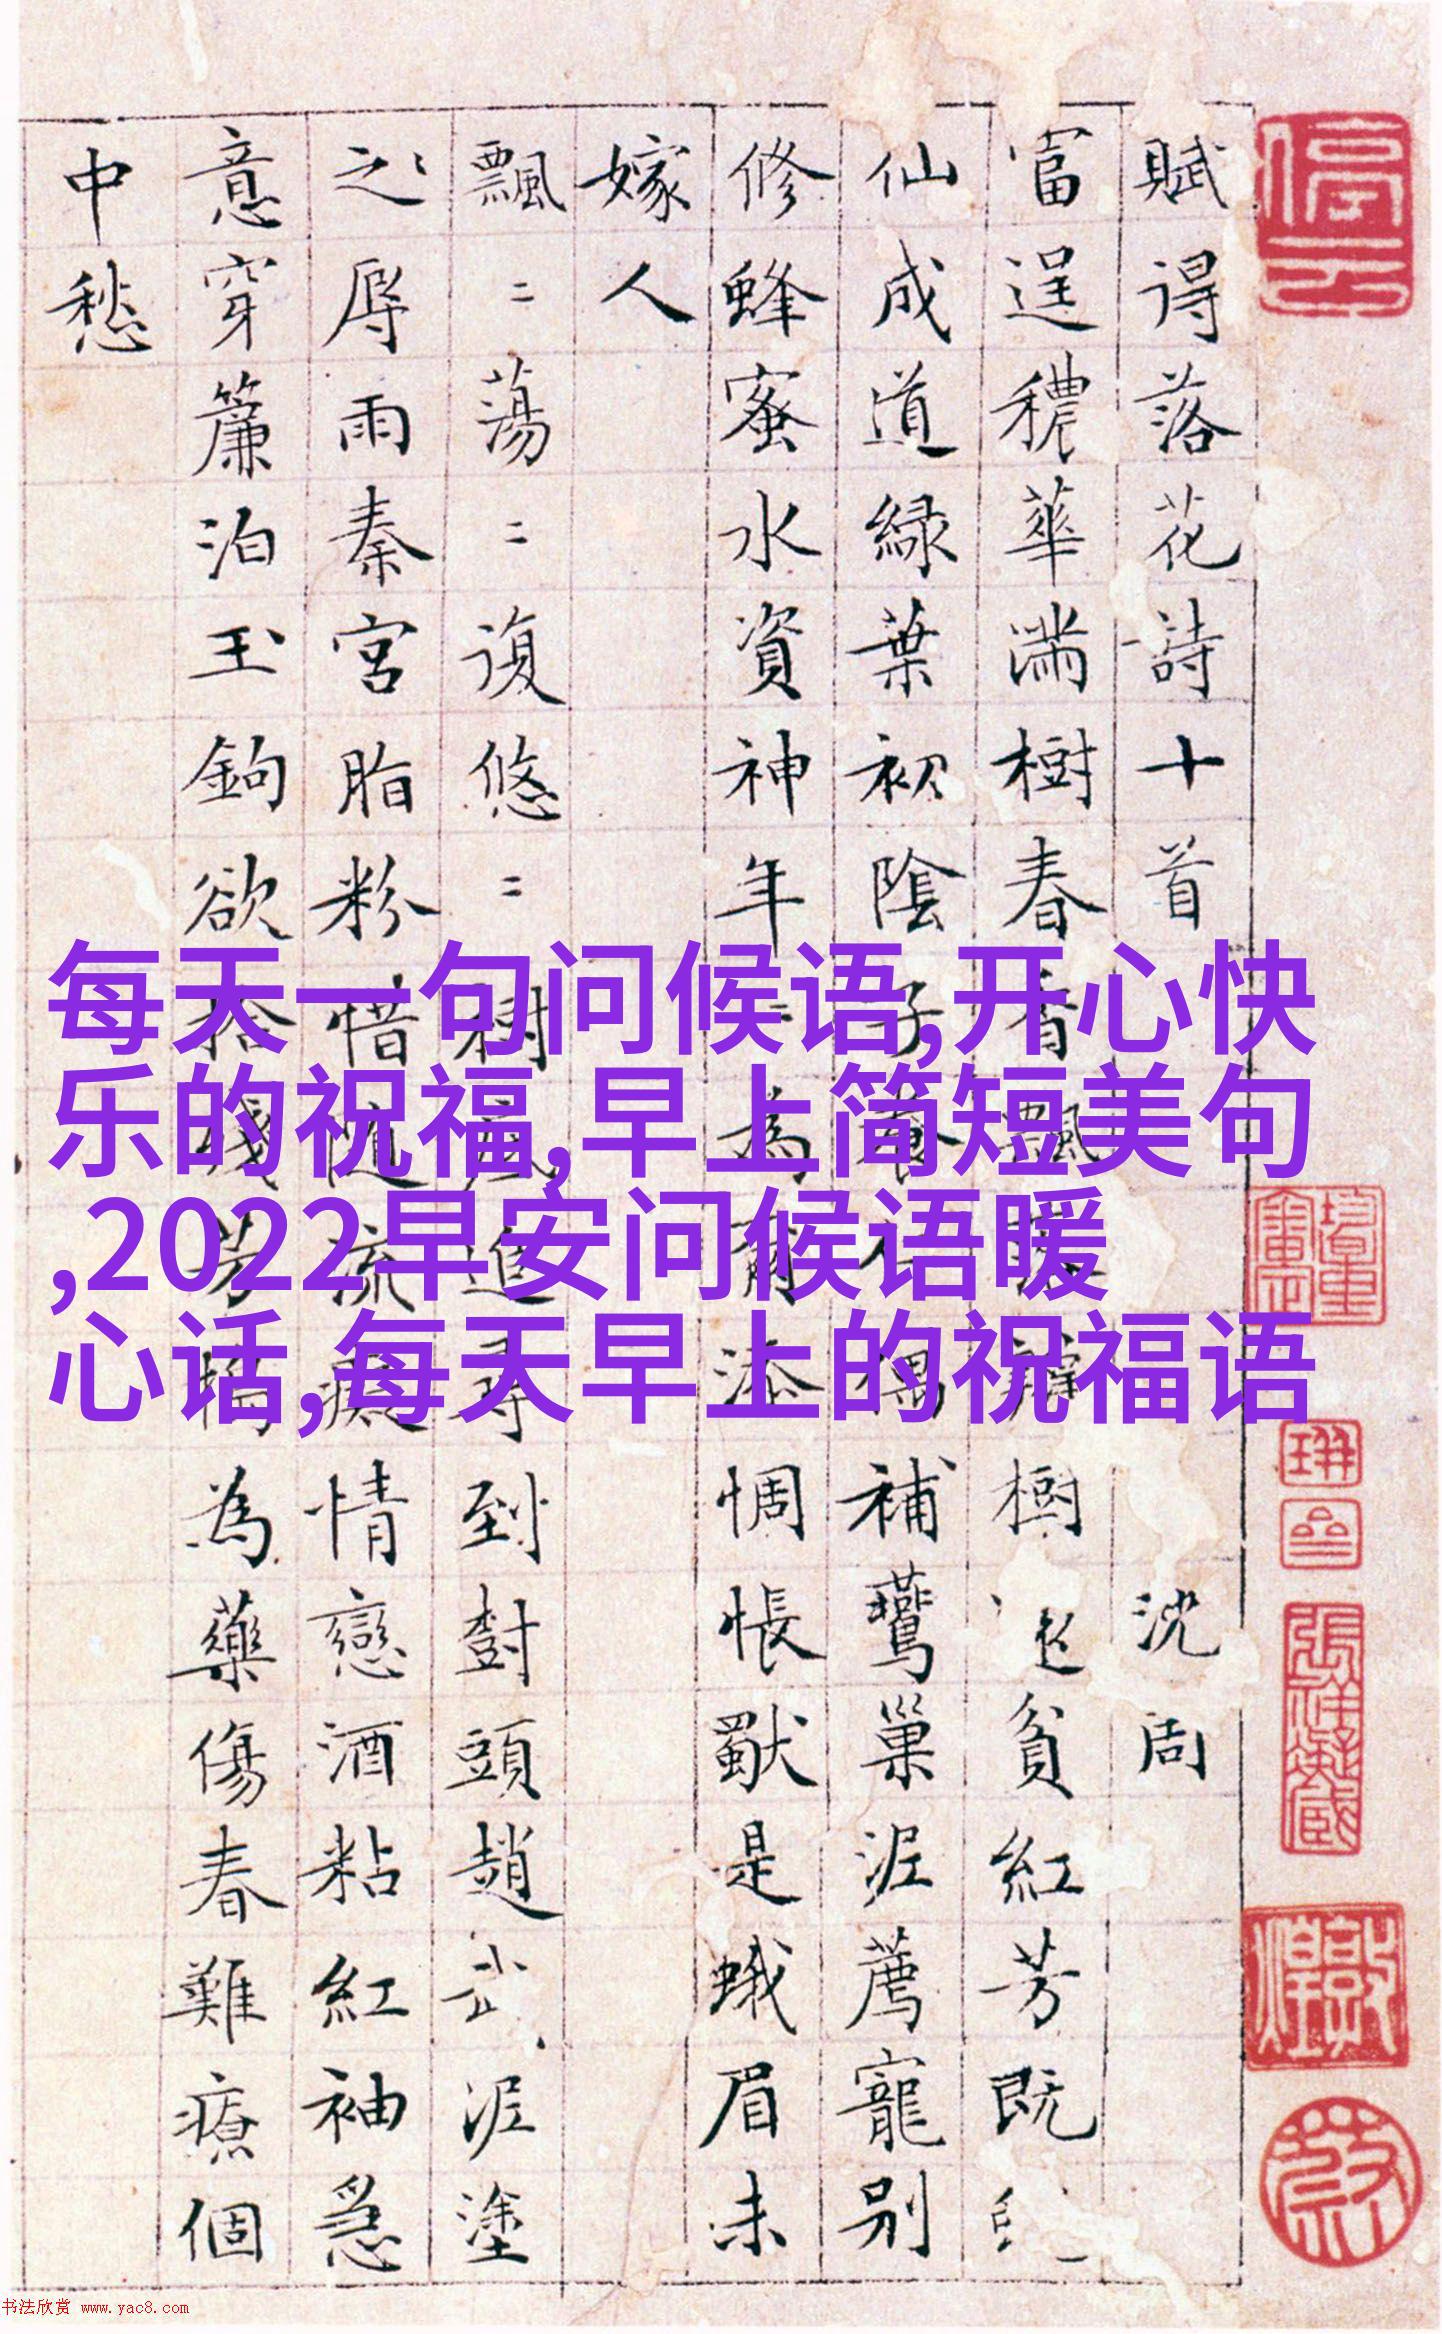 賦得落花詩十首 沈周
富逞穠華滿樹春香飄 樹 貧紅芳既
仙成道綠葉初陰子養 補鶯巢泥薦寵別
修蜂蜜水資神年二為 添惆悵獸是蛾眉未
嫁人
飄二蕩二復悠二樹 追尋到樹頭趙武泥塗
之辱雨秦宮脂粉惜隨流癡情戀酒粘紅袖急
意穿簾泊玉鉤欲拾殘芳搗為藥傷春難療個
中愁
每天一句问候语,开心快
乐的祝福,早上简短美句
,2022早安问候语暖
心话,每天早上的祝福语
停云
书法欣赏 www.yac8.com